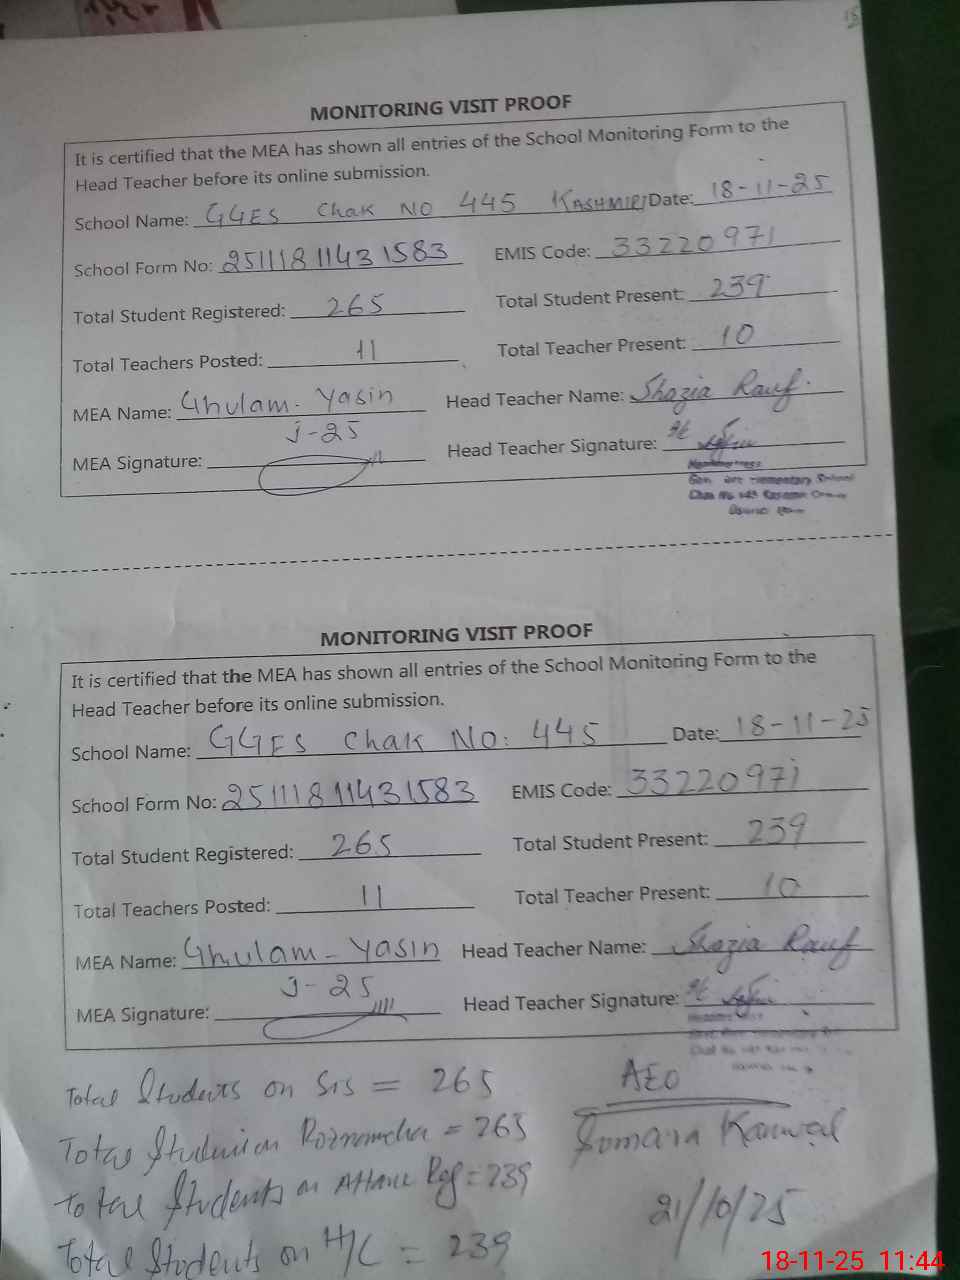 15
MONITORING VISIT PROOF
It is certified that the MEA has shown all entries of the School Monitoring Form to the
Head Teacher before its online submission.
School Name: GGES Chak NO 445 KASHMIRI Date: 18-11-25
School Form No: 25111811431583 EMIS Code: 33220971
Total Student Registered: 265 Total Student Present: 239
Total Teachers Posted: 11 Total Teacher Present: 10
MEA Name: Ghulam. Yasin Head Teacher Name: Shazia Rauf.
j-25
MEA Signature: Head Teacher Signature:
MONITORING VISIT PROOF
It is certified that the MEA has shown all entries of the School Monitoring Form to the
Head Teacher before its online submission.
School Name: GGES Chak NO: 445 Date: 18-11-25
School Form No: 25111811431583 EMIS Code: 33220971
Total Student Registered: 265 Total Student Present: 239
Total Teachers Posted: 11 Total Teacher Present: 10
MEA Name: Ghulam - Yasin Head Teacher Name: Shazia Rauf
J-25
MEA Signature: Head Teacher Signature:
Total Students on SIS = 265
AEO
Total on = 265
Kanwal
Total Students on Reg = 239
21/10/25
Total Students on H/C = 239
18-11-25 11:44